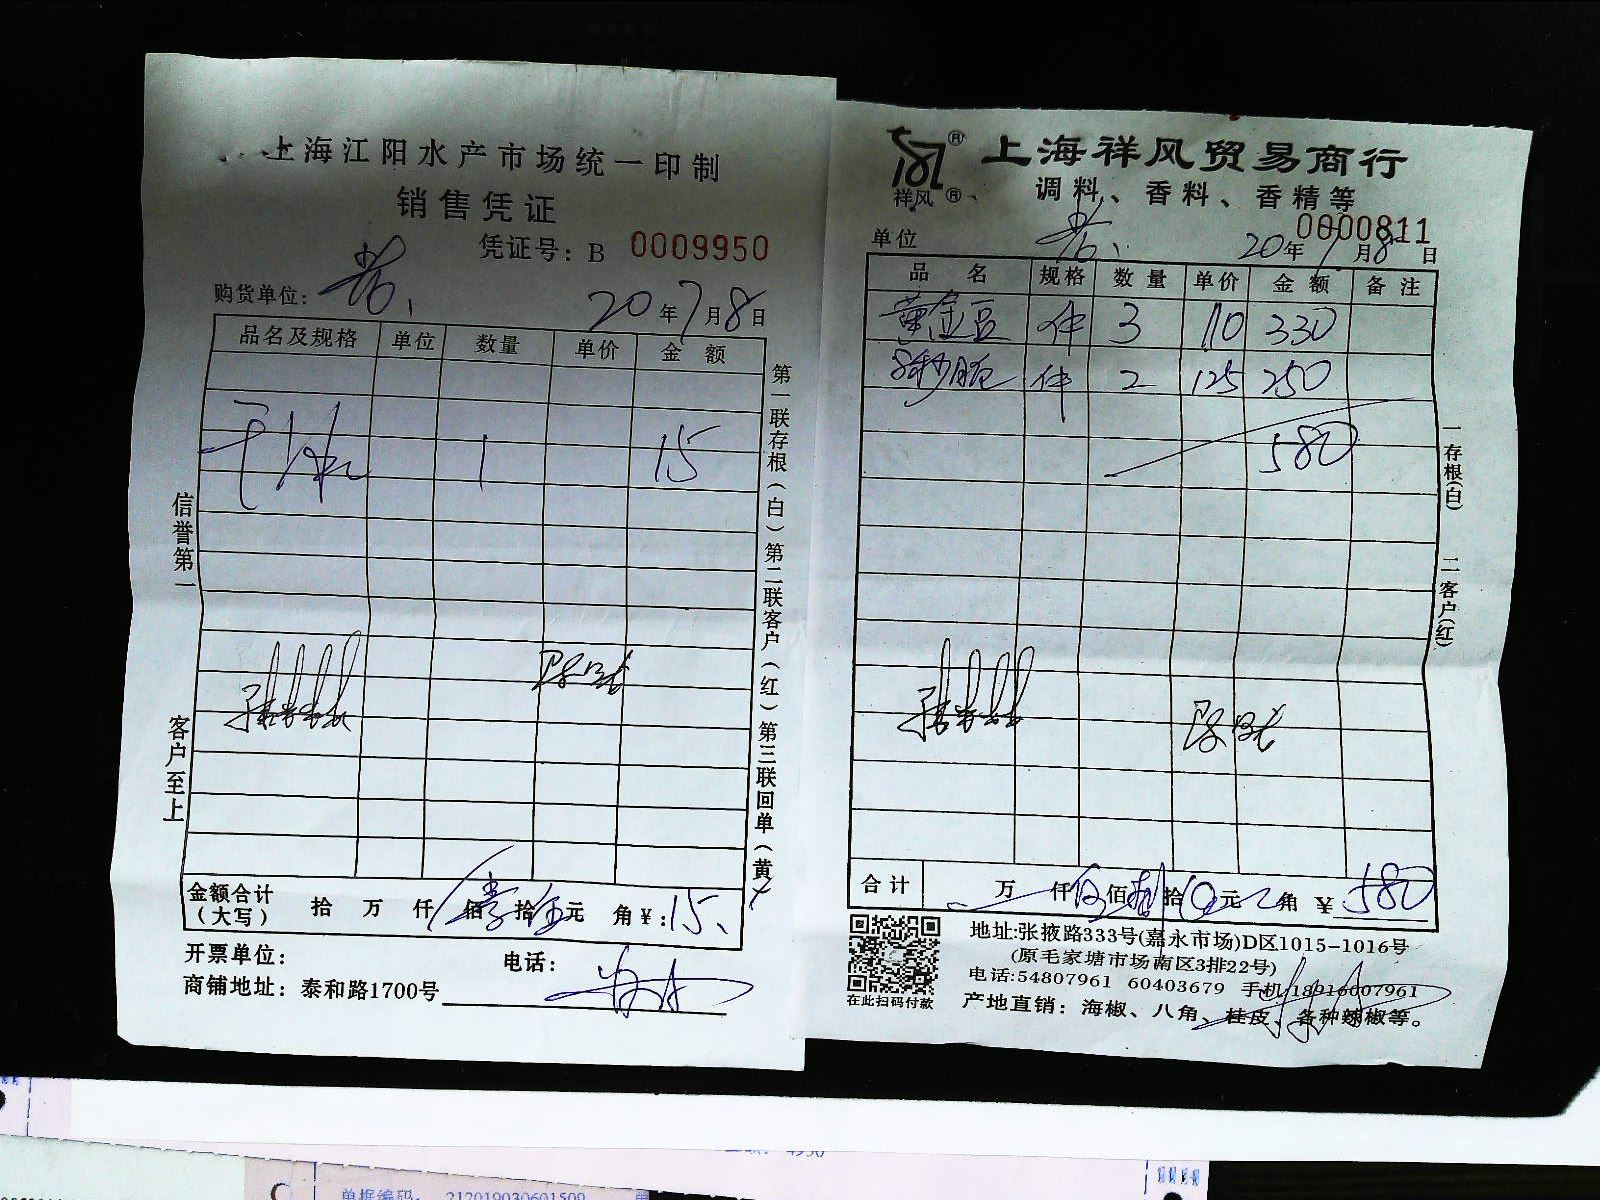 上海江阳水产市场统一印制
销售凭证
凭证号：B 0009950
购货单位：
20年7月8日
品名及规格 单位 数量 单价 金额
1 15
信誉第一
客户至上
第一联存根（白）第二联客户（红）第三联回单（黄）
金额合计（大写） 拾 万 仟 佰 壹拾伍元 角 ¥：15、
开票单位：
电话：
商铺地址：泰和路1700号
祥风
上海祥风贸易商行
调料、香料、香精等
0000811
单位
20年7月8日
品名 规格 数量 单价 金额 备注
黄金豆 件 3 110 330
件 2 125 250
580
一存根(白) 二客户(红)
合计 万 仟伍佰捌拾0元 角 ¥580
地址:张掖路333号(嘉永市场)D区1015-1016号
(原毛家塘市场南区3排22号)
电话:54807961 60403679 手机:18916007961
在此扫码付款
产地直销：海椒、八角、桂皮、各种辣椒等。
单据编码： 212019030601509